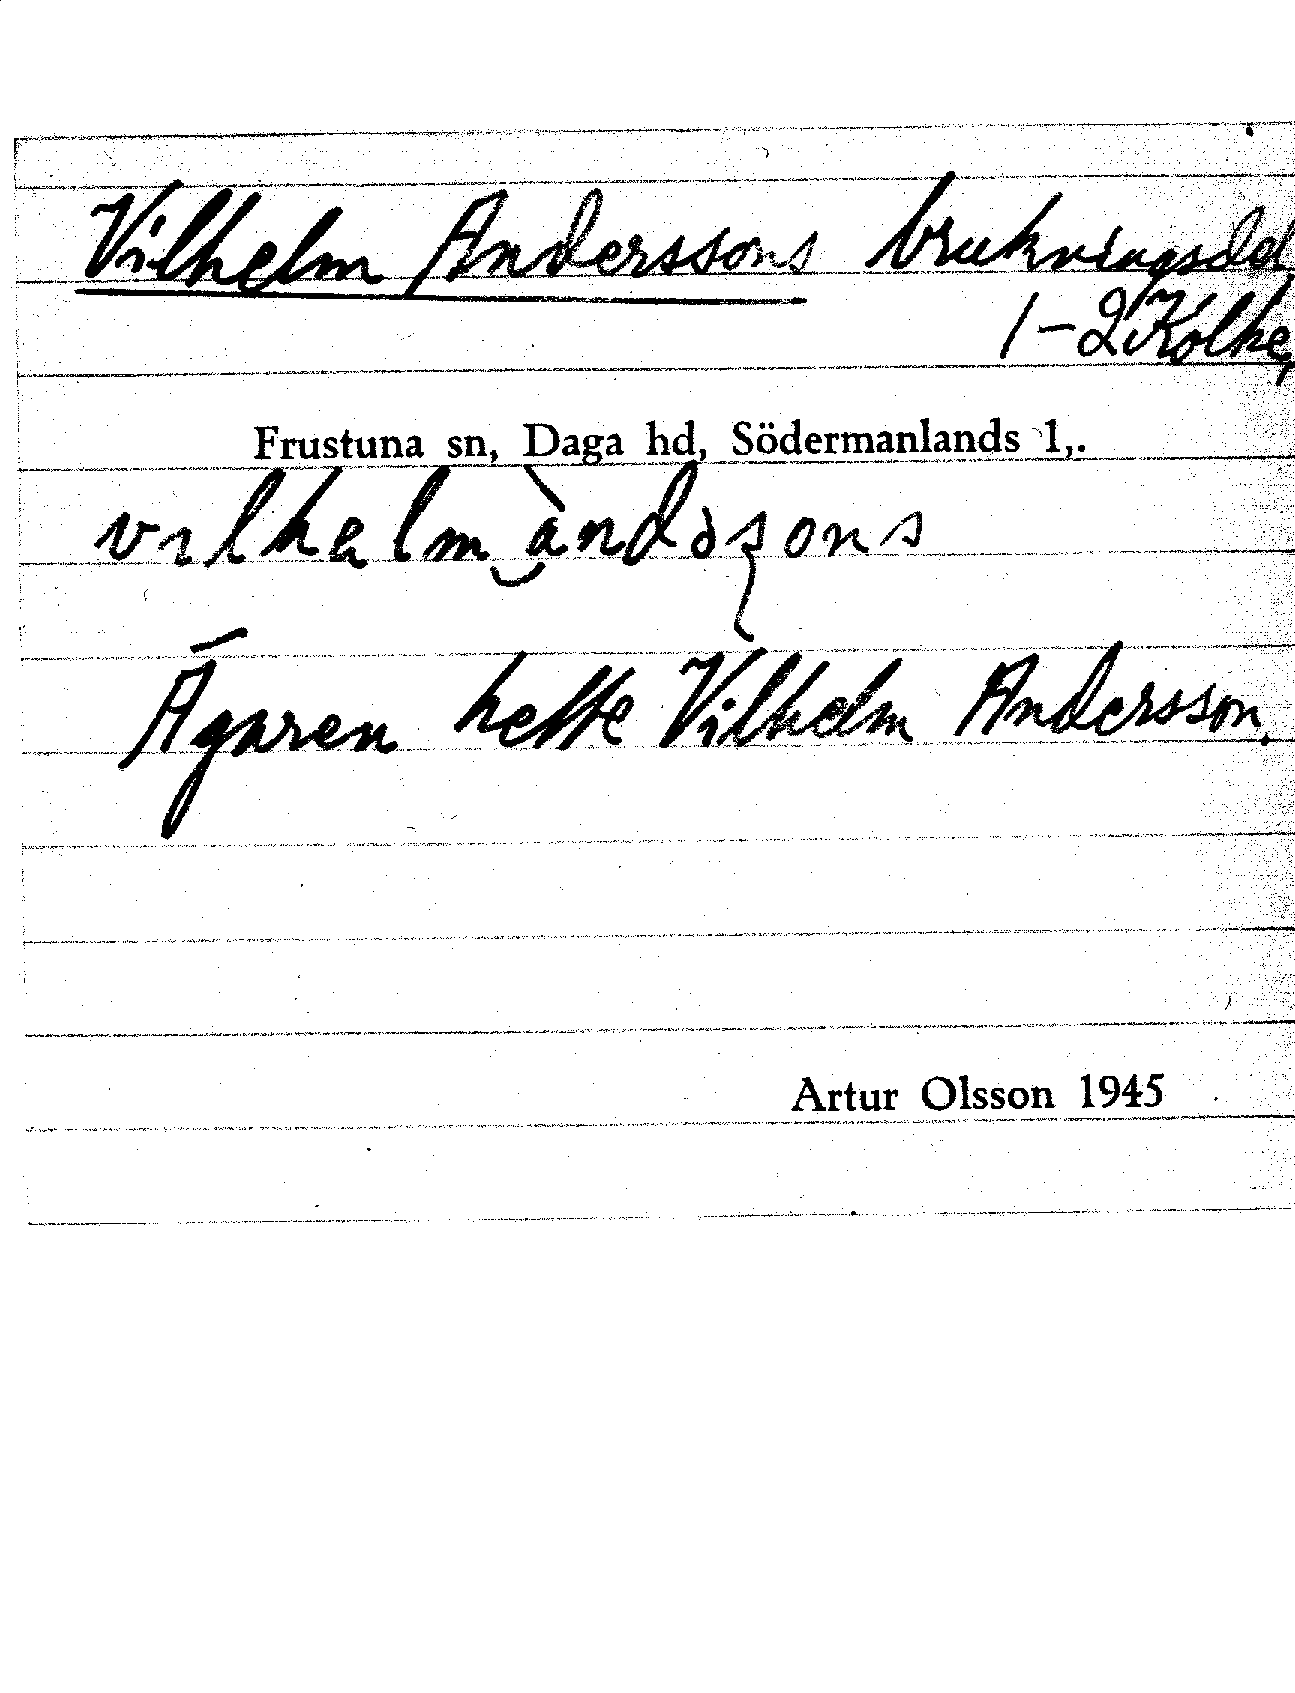 Vilhelm Anderssons brukningsdel,
1-2 Kolke,
Frustuna sn, Daga hd, Södermanlands l,.
Ägaren hette Vilhelm Andersson.
Artur Olsson 1945